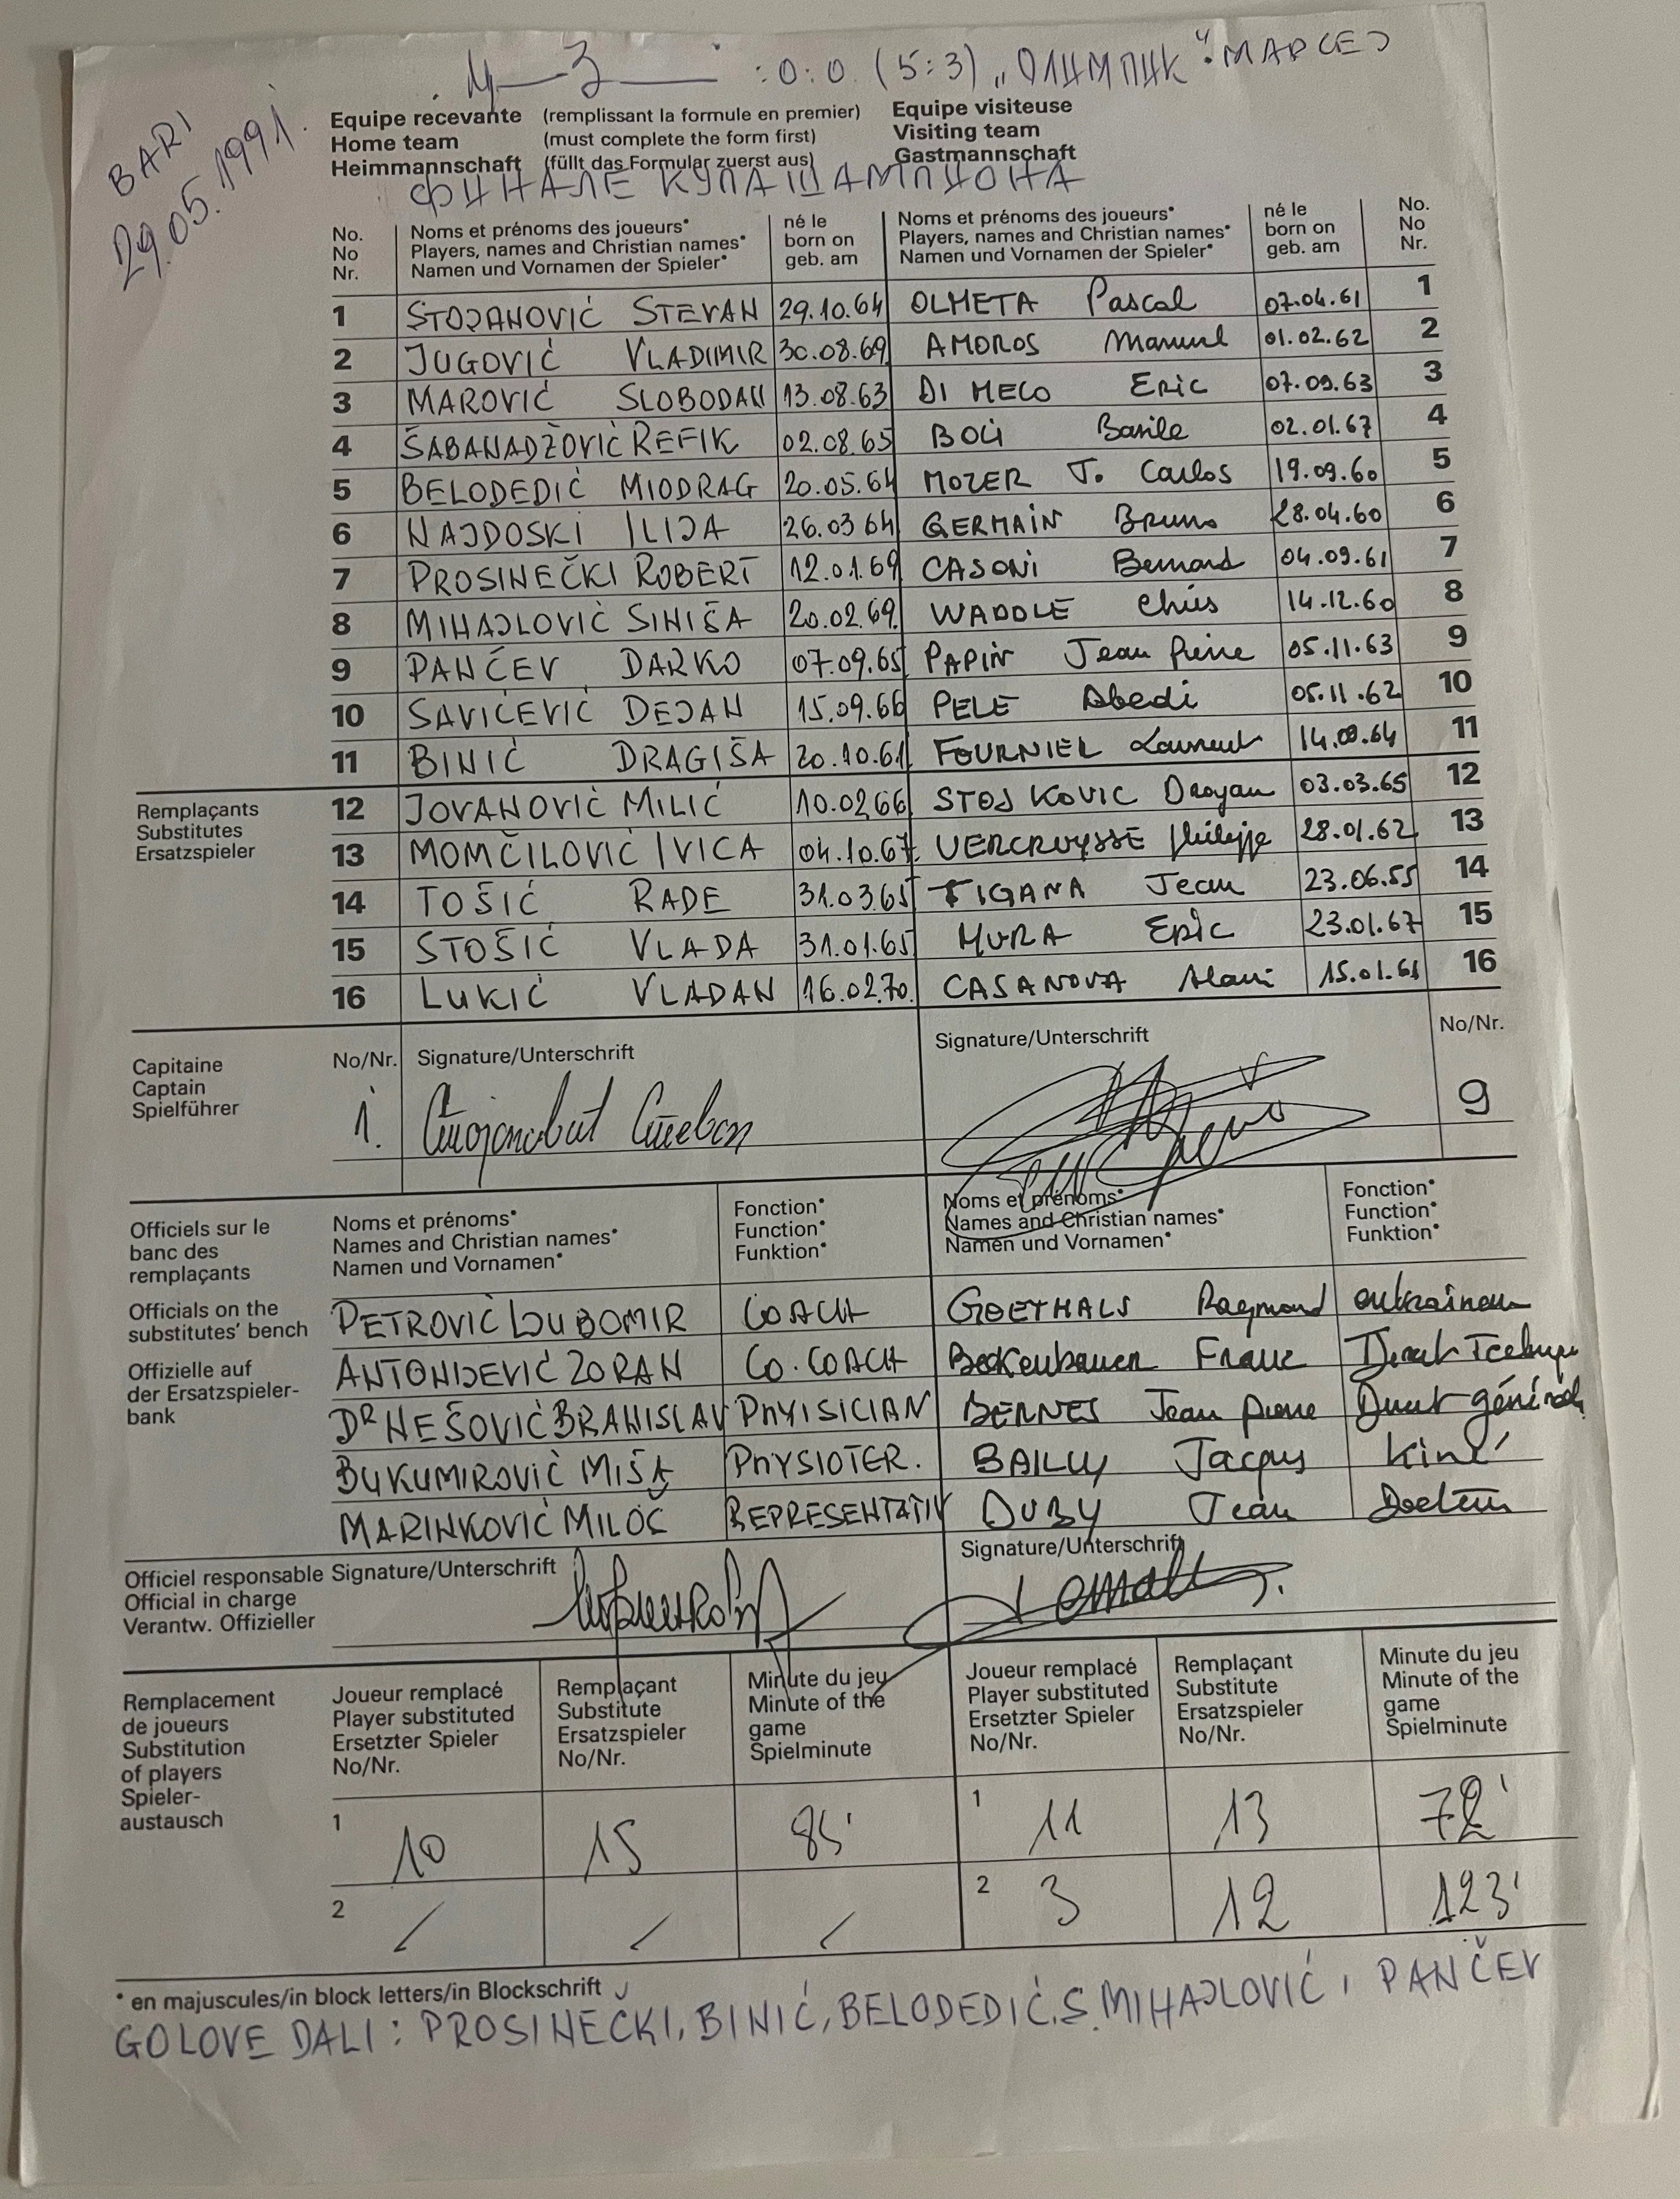 : 0 : 0 (5:3) „ОЛИМПИК“ МАРСЕЈ
BARI
29.05.1991.
Equipe recevante (remplissant la formule en premier) Equipe visiteuse
Home team (must complete the form first) Visiting team
Heimmannschaft (füllt das Formular zuerst aus) Gastmannschaft
ФИНАЛЕ КУПА ШАМПИОНА
No. Noms et prénoms des joueurs* né le Noms et prénoms des joueurs* né le No.
No Players, names and Christian names* born on Players, names and Christian names* born on No
Nr. Namen und Vornamen der Spieler* geb. am Namen und Vornamen der Spieler* geb. am Nr.
1 STOJANOVIĆ STEVAN 29.10.64 OLMETA Pascal 07.04.61 1
2 JUGOVIĆ VLADIMIR 30.08.69 AMOROS Manuel 01.02.62 2
3 MAROVIĆ SLOBODAN 13.08.63 DI MECO Eric 07.09.63 3
4 ŠABANADŽOVIĆ REFIK 02.08.65 BOLI Basile 02.01.67 4
5 BELODEDIĆ MIODRAG 20.05.64 MOZER J. Carlos 19.09.60 5
6 NAJDOSKI ILIJA 26.03 64 GERMAIN Bruno 28.04.60 6
7 PROSINEČKI ROBERT 12.01.69 CASONI Bernard 04.09.61 7
8 MIHAJLOVIĆ SINIŠA 20.02.69. WADDLE Chris 14.12.60 8
9 PANČEV DARKO 07.09.65 PAPIN Jean Pierre 05.11.63 9
10 SAVIĆEVIĆ DEJAN 15.09.66 PELE Abedi 05.11.62 10
11 BINIĆ DRAGIŠA 20.10.61 FOURNIER Laurent 14.09.64 11
Remplaçants 12 JOVANOVIĆ MILIĆ 10.02.66 STOJKOVIC Dragan 03.03.65 12
Substitutes
Ersatzspieler 13 MOMČILOVIĆ IVICA 04.10.67. VERCRUYSSE Philippe 28.01.62 13
14 TOŠIĆ RADE 31.03.65 TIGANA Jean 23.06.55 14
15 STOŠIĆ VLADA 31.01.65 MURA Eric 23.01.67 15
16 LUKIĆ VLADAN 16.02.70. CASANOVA Alain 15.01.61 16
Capitaine No/Nr. Signature/Unterschrift Signature/Unterschrift No/Nr.
Captain
Spielführer 1. Стојановић Стеван 9
Officiels sur le Noms et prénoms* Fonction* Noms et prénoms* Fonction*
banc des Names and Christian names* Function* Names and Christian names* Function*
remplaçants Namen und Vornamen* Funktion* Namen und Vornamen* Funktion*
Officials on the
substitutes' bench PETROVIĆ LJUBOMIR COACH GOETHALS Raymond entraineur
Offizielle auf
der Ersatzspieler-
bank ANTONIJEVIĆ ZORAN CO. COACH Beckenbauer Franz
DR NEŠOVIĆ BRANISLAV PHYISICIAN BERNES Jean pierre Direct général
BUKUMIROVIĆ MIŠA PHYSIOTER. BAILLY Jacques kiné
MARINKOVIĆ MILOŠ REPRESENTATIV DUBY Jean Docteur
Officiel responsable Signature/Unterschrift Signature/Unterschrift
Official in charge
Verantw. Offizieller
Remplacement Joueur remplacé Remplaçant Minute du jeu Joueur remplacé Remplaçant Minute du jeu
de joueurs Player substituted Substitute Minute of the Player substituted Substitute Minute of the
Substitution Ersetzter Spieler Ersatzspieler game Ersetzter Spieler Ersatzspieler game
of players No/Nr. No/Nr. Spielminute No/Nr. No/Nr. Spielminute
Spieler-
austausch
1 10 15 85' 1 11 13 72'
2 / / / 2 3 12 123'
* en majuscules/in block letters/in Blockschrift
GOLOVE DALI: PROSINECKI, BINIĆ, BELODEDIĆ, S. MIHAJLOVIĆ I PANČEV